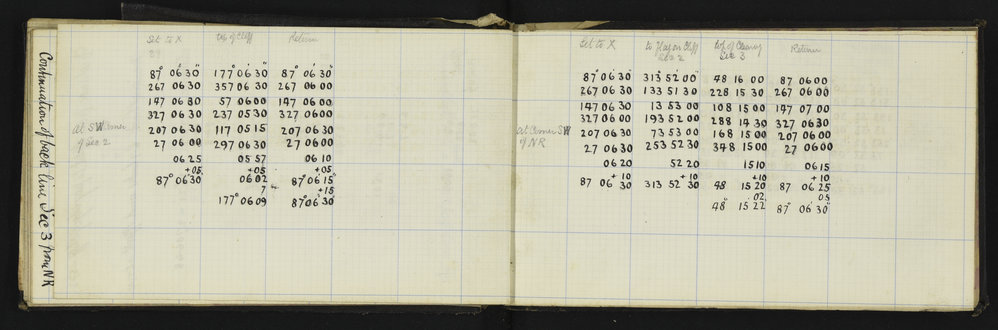 Continuation of back line Sec 3 from NR
Set to X top of Cliff Return
87° 06' 30" 177° 06' 30" 87° 06' 30"
267 06 30 357 06 30 267 06 00
147 06 30 57 06 00 147 06 00
327 06 30 237 05 30 327 06 00
at SW Corner 207 06 30 117 05 15 207 06 30
of Sec 2 27 06 00 297 06 30 27 06 00
06 25 05 57 06 10
+05 +05 +05
87° 06' 30 06 02 87° 06' 15"
7 +15
177° 06 09 87° 06' 30"
Set to X to Flag on Cliff Sec 2 top of Sec 3 Return
87° 06' 30" 313° 52' 00" 48 16 00 87 06 00
267 06 30 133 51 30 228 15 30 267 06 00
147 06 30 13 53 00 108 15 00 147 07 00
327 06 00 193 52 00 288 14 30 327 06 30
at Corner SW 207 06 30 73 53 00 168 15 00 207 06 00
of NR 27 06 30 253 52 30 348 15 00 27 06 00
06 20 52 20 15 10 06 15
+10 +10 +10 +10
87 06 30 313 52 30 48 15 20 87 06 25
02 05
48° 15 22 87° 06' 30"